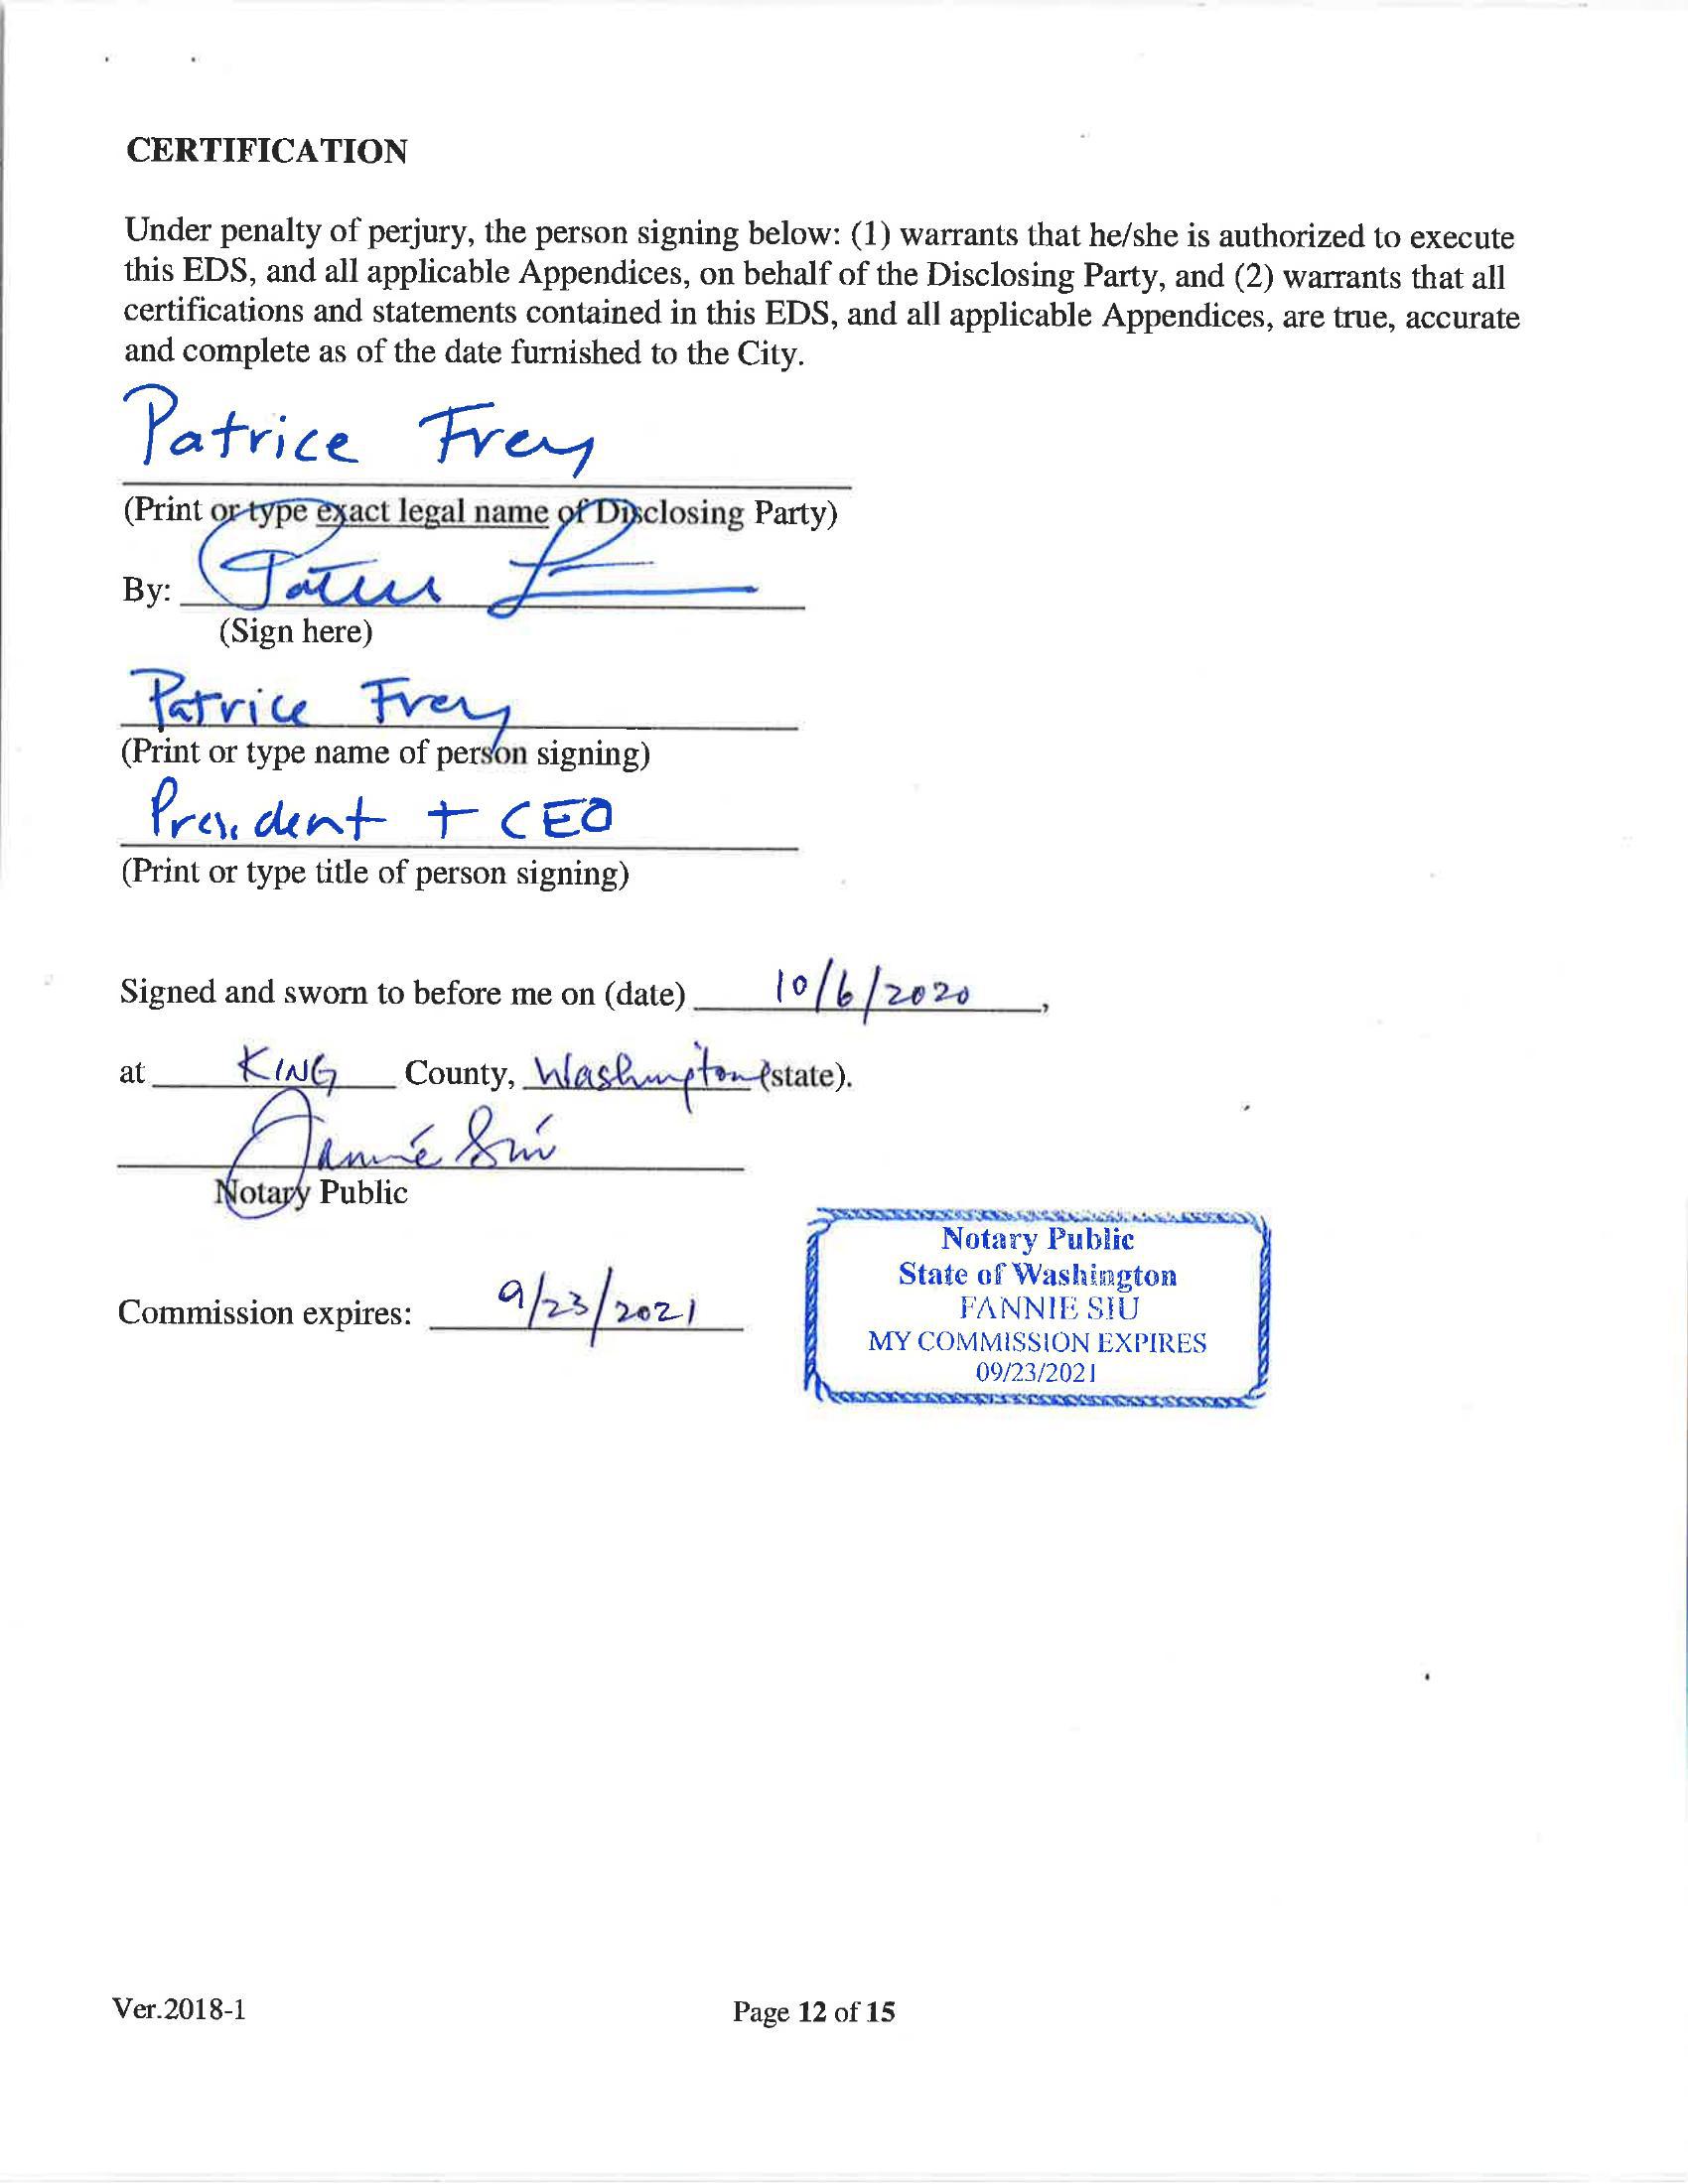 CERTIFICATION
Under penalty of perjury, the person signing below: (1) warrants that he/she is authorized to execute
this EDS, and all applicable Appendices, on behalf of the Disclosing Party, and (2) warrants that all
certifications and statements contained in this EDS, and all applicable Appendices, are true, accurate
and complete as of the date furnished to the City.
Patrice Frey
(Print or type exact legal name of Disclosing Party)
By:
(Sign here)
Patrice Frey
(Print or type name of person signing)
President + CEO
(Print or type title of person signing)
Signed and sworn to before me on (date) 10/6/2020,
at KING County, Washington (state).
Fannie Siu
Notary Public
Notary Public
State of Washington
Commission expires: 9/23/2021
FANNIE SIU
MY COMMISSION EXPIRES
09/23/2021
Ver.2018-1
Page 12 of 15